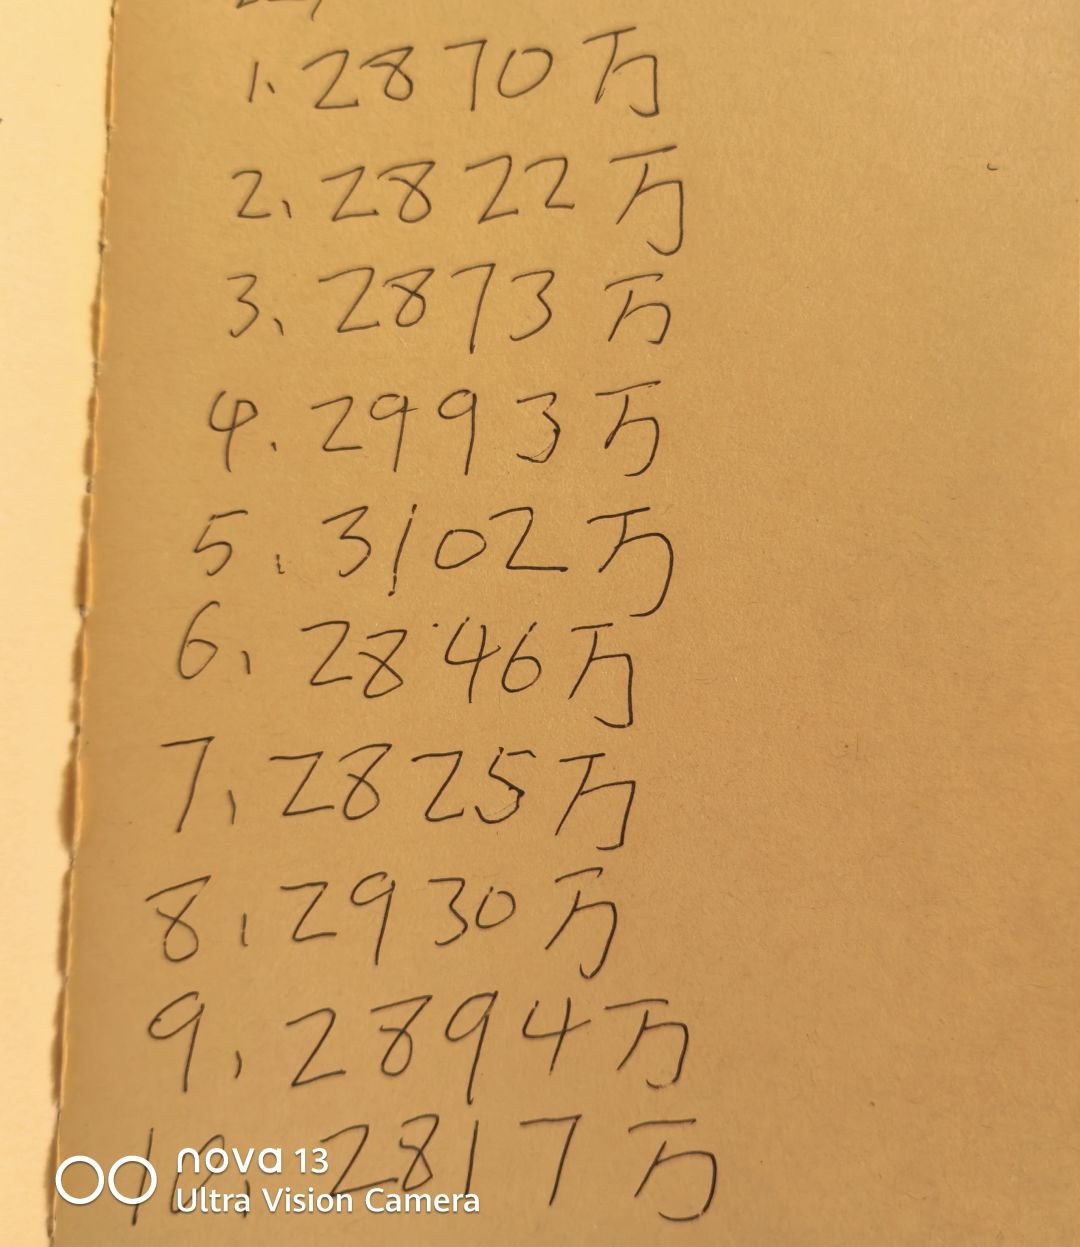 1、2870万
2、2822万
3、2873万
4、2993万
5、3102万
6、2846万
7、2825万
8、2930万
9、2894万
10、2817万
nova 13
Ultra Vision Camera